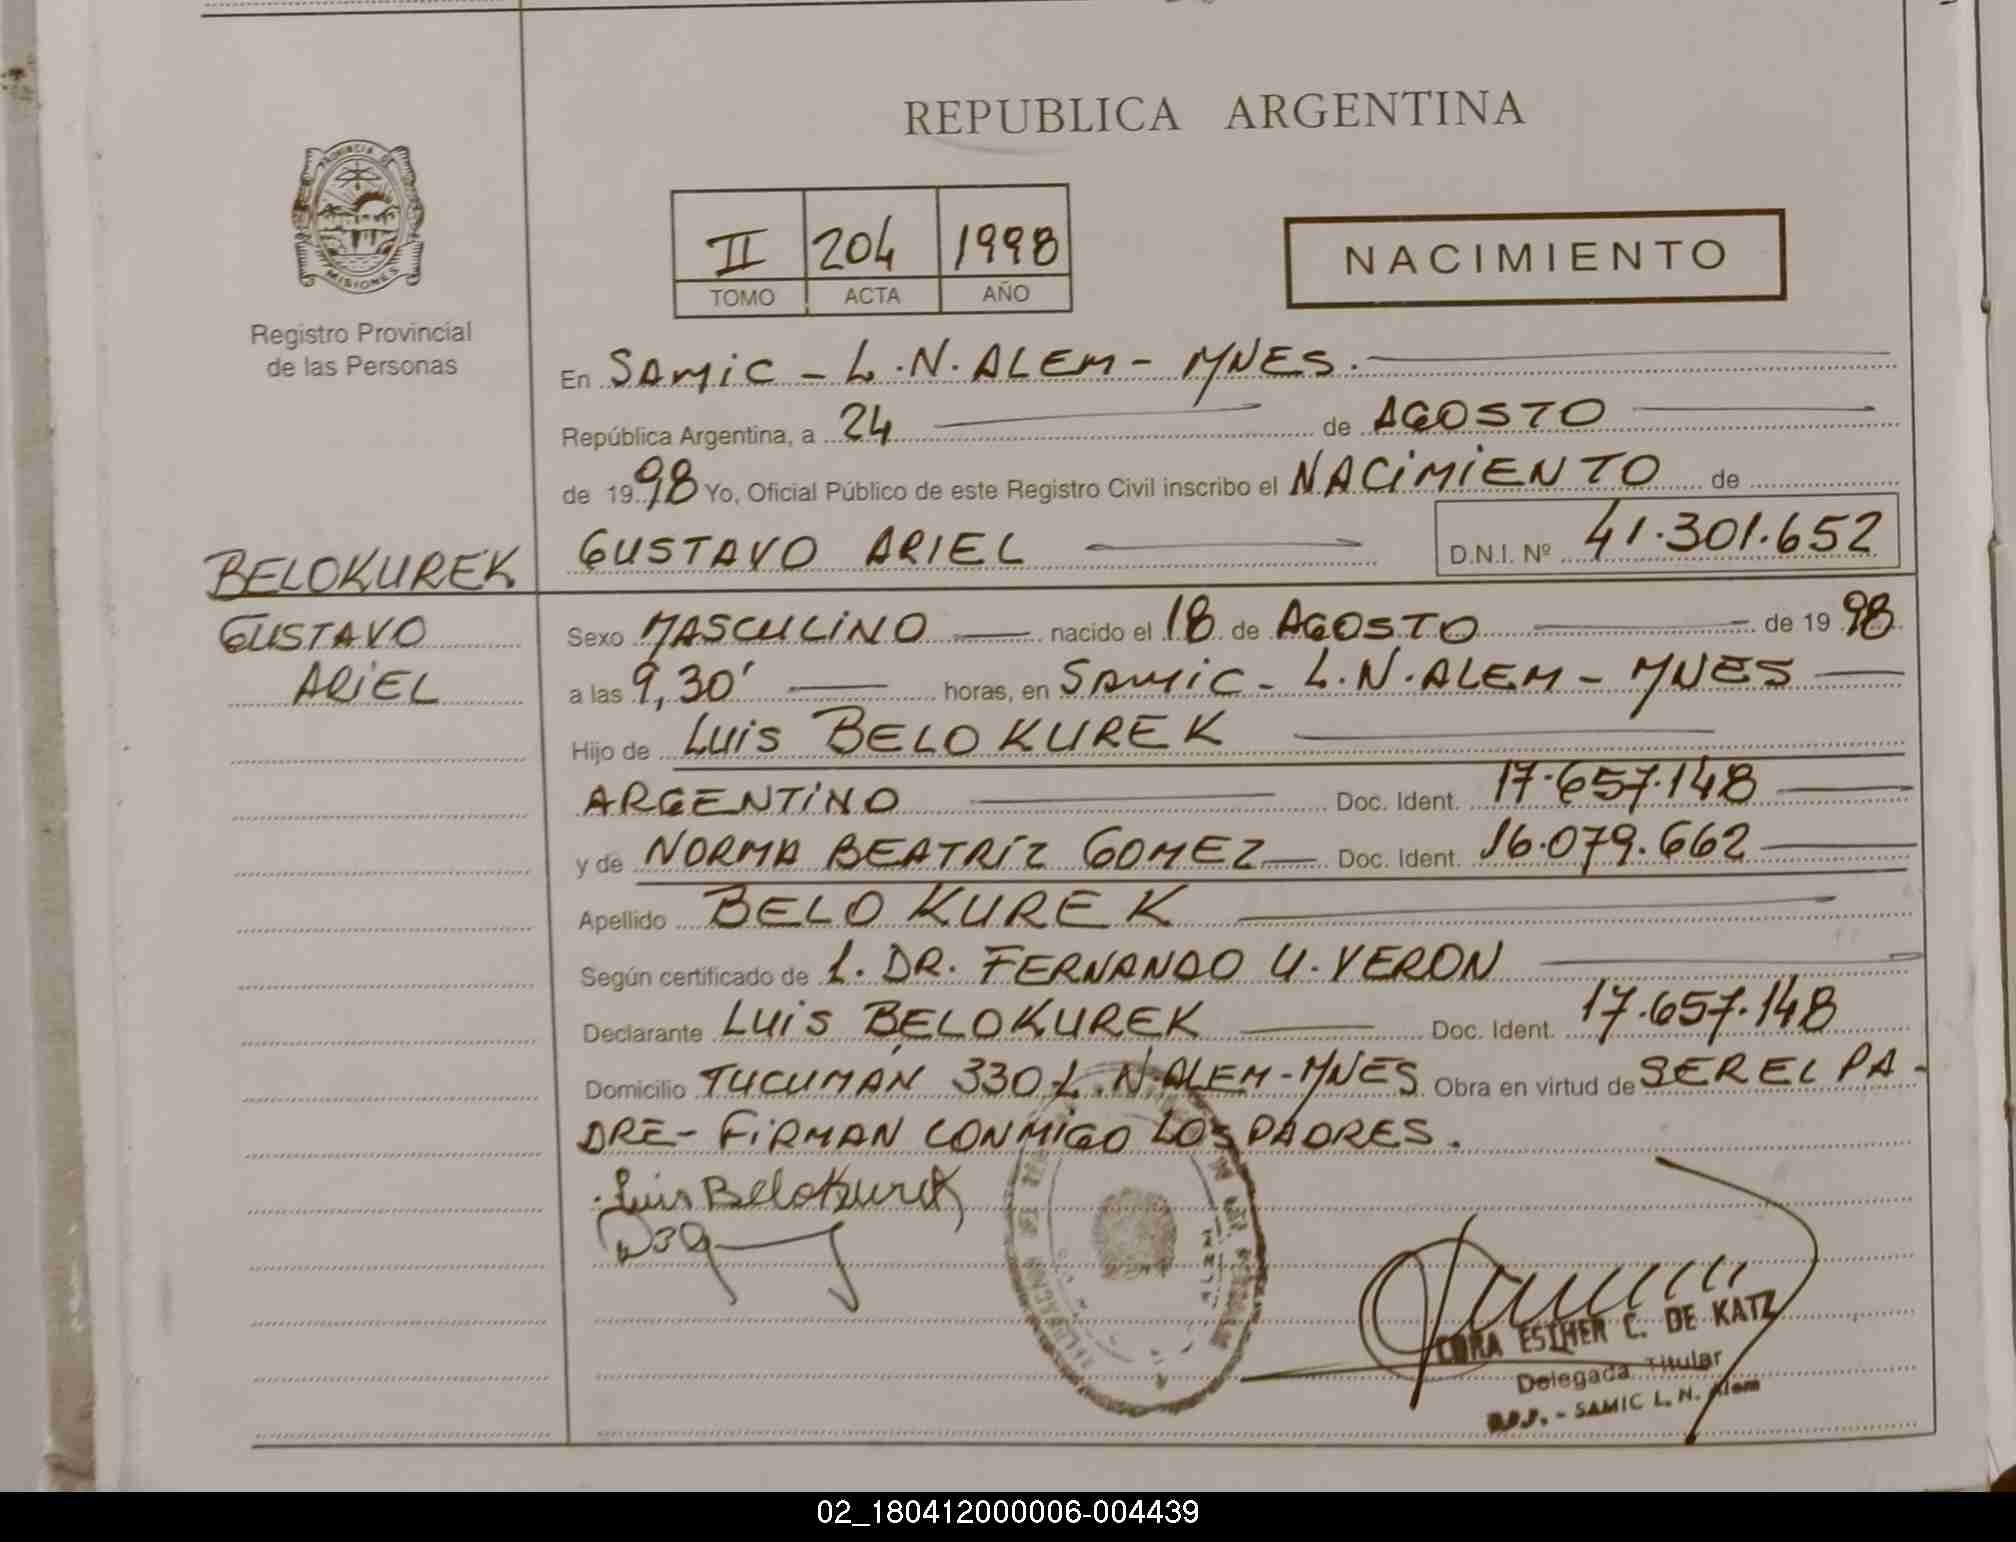 REPUBLICA ARGENTINA
PROVINCIA DE
MISIONES
Registro Provincial
de las Personas
II 204 1998
TOMO ACTA AÑO
NACIMIENTO
En SAMIC - L.N. ALEM - MNES.
República Argentina, a 24 de AGOSTO
de 1998 Yo, Oficial Público de este Registro Civil inscribo el NACIMIENTO de
GUSTAVO ARIEL D.N.I. Nº 41.301.652
BELOKUREK
GUSTAVO
ARIEL
Sexo MASCULINO nacido el 18 de AGOSTO de 1998
a las 9,30' horas, en SAMIC - L.N. ALEM - MNES
Hijo de LUIS BELOKUREK
ARGENTINO Doc. Ident. 17.657.148
y de NORMA BEATRIZ GOMEZ Doc. Ident. 16.079.662
Apellido BELOKUREK
Según certificado de L. DR. FERNANDO U. VERON
Declarante LUIS BELOKUREK Doc. Ident. 17.657.148
Domicilio TUCUMAN 330 L.N. ALEM - MNES Obra en virtud de SER EL PA-
DRE - FIRMAN CONMIGO LOS PADRES.
Luis Belokurek
ESTHER C. DE KATZ
Delegada Titular
SAMIC L. N. Alem
02_180412000006-004439